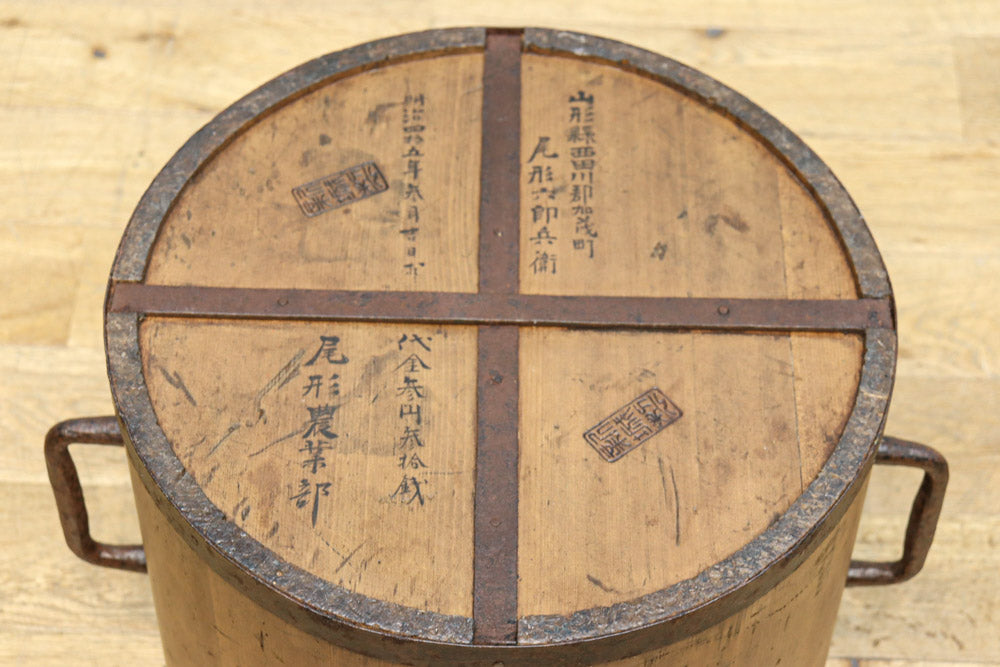 山形縣西田川郡加茂町
尾形六郎兵衛
明治四拾五年参月廿日求
代金参円参拾銭
尾形農業部